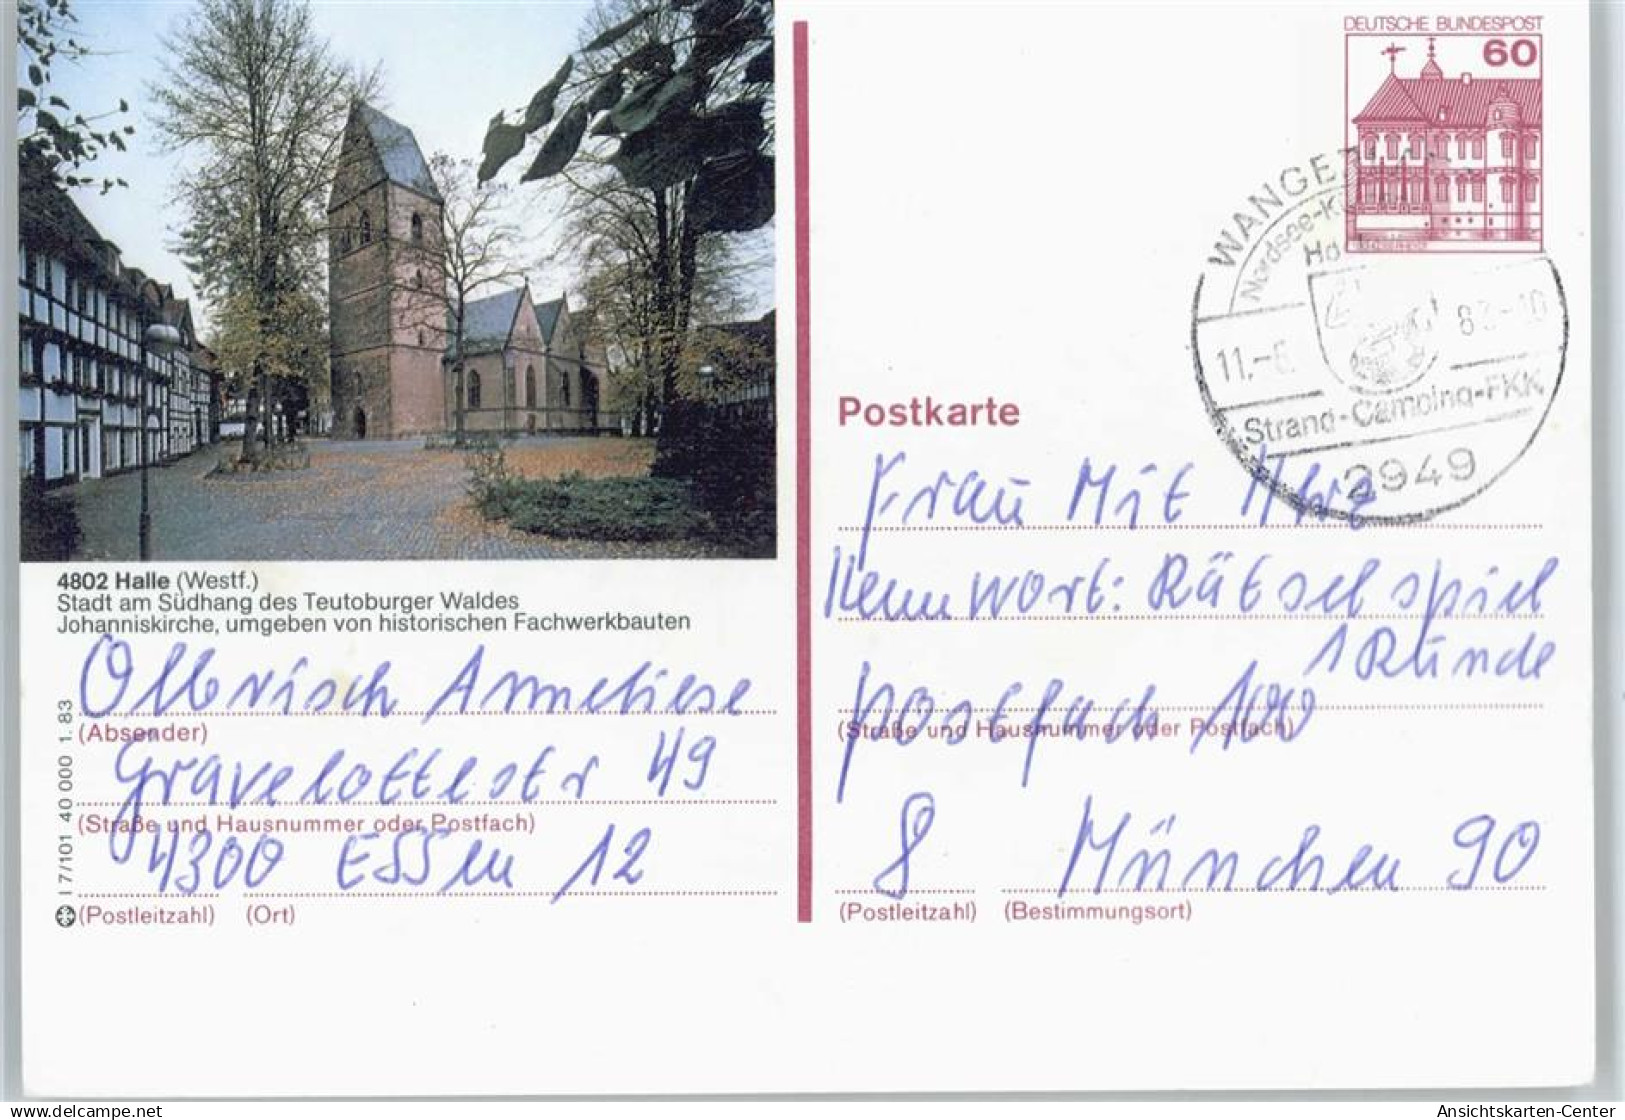 DEUTSCHE BUNDESPOST
60
Nordsee-
11.-
Strand-Camping-FKK
2949
Postkarte
Frau Mit Uhr
Kennwort: Rätselspiel
1 Runde
postfach 100
(Straße und Hausnummer oder Postfach)
8 München 90
(Postleitzahl) (Bestimmungsort)
4802 Halle (Westf.)
Stadt am Südhang des Teutoburger Waldes
Johanniskirche, umgeben von historischen Fachwerkbauten
Olbrisch Anneliese
(Absender)
Gravelottestr 49
(Straße und Hausnummer oder Postfach)
4300 ESSen 12
(Postleitzahl) (Ort)
I 7/101 40 000 1.83
Ansichtskarten-Center